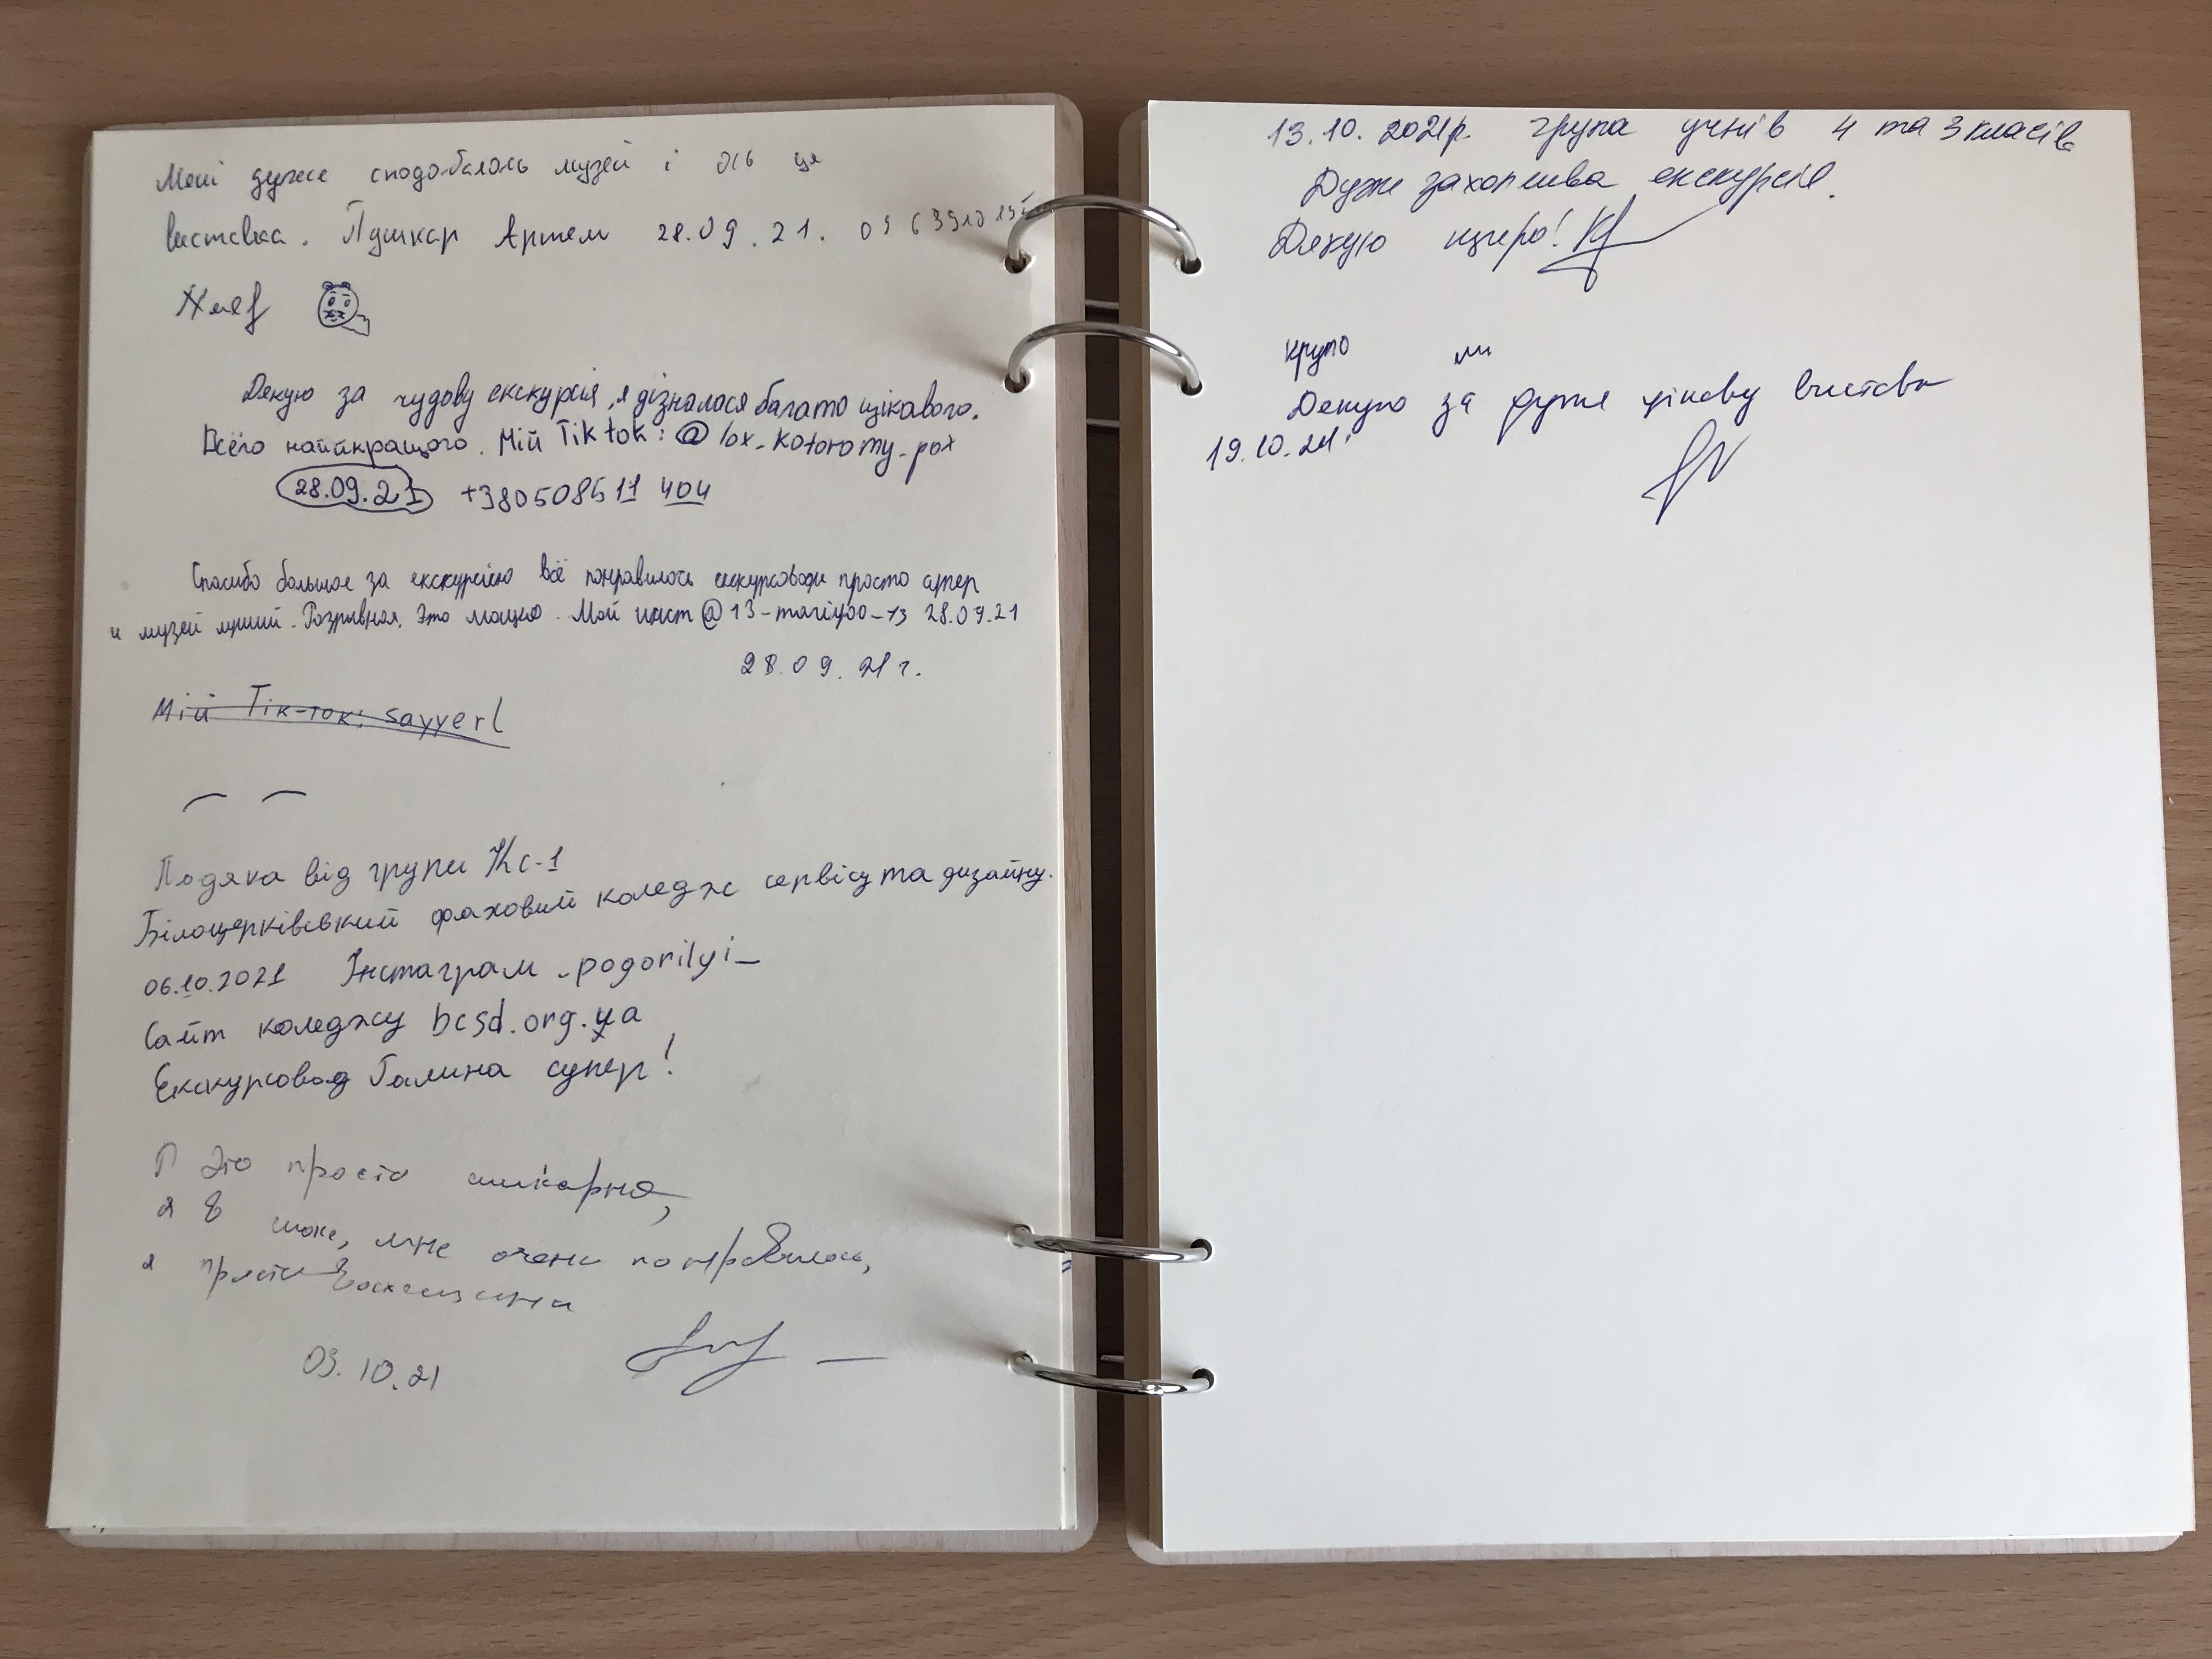 Мені дуже сподобалось музей і ось ця
виставка. Пушкар Артем 28.09.21.
Дякую за чудову екскурсія, я дізналася багато цікавого.
Всего найкращого. Мій Tik tok: @ lox_kotoromy_pox
28.09.21 +380508511 404
Спасибо большое за екскурсию всё понравилось екскурсоводи просто супер
и музей лучший. Розривная. Это мощно. Мой инст @13-mariyoo-13 28.09.21
28.09.21 г.
Мій Тік-ток: sayyerl
Подяка від групи Кс-1
Білоцерківський фаховий коледж сервісу та дизайну.
06.10.2021 Інстаграм _pogorilyi_
Сайт коледжу bcsd.org.ua
Екскурсовод Галина супер!
П Это просто шикарно,
я в шоке, мне очень понравилось,
я просто
03.10.21
13.10.2021р. група учнів 4 та 3 класів
Дуже захоплива екскурсія.
Дякую щиро!
круто ми
Дякую за дуже цікаву виставку
19.10.21.